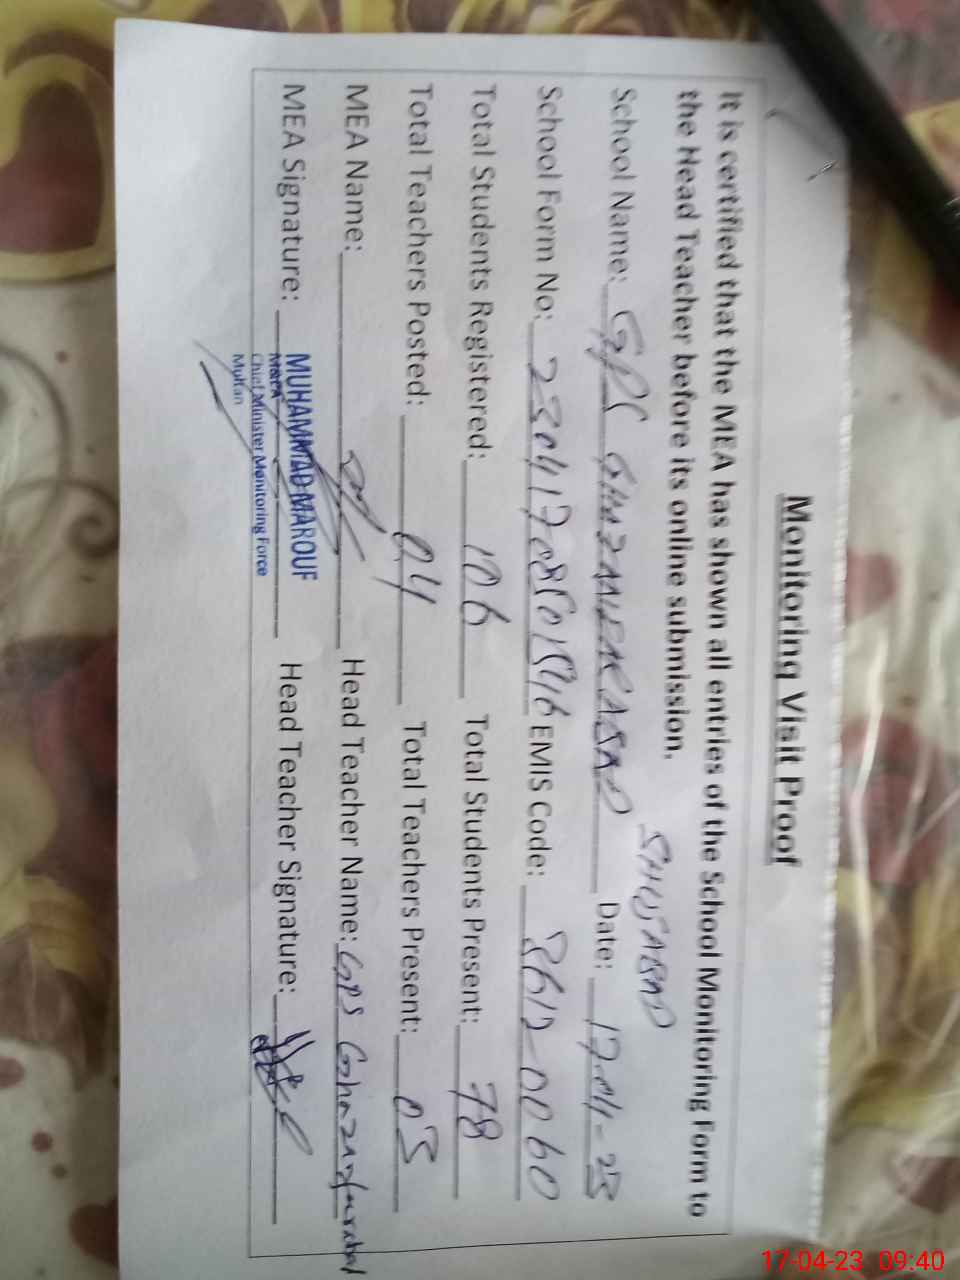 Monitoring Visit Proof
It is certified that the MEA has shown all entries of the School Monitoring Form to
the Head Teacher before its online submission.
SHUJABAD
School Name: GPS GHAZANFARABAD Date: 17-04-23
School Form No: EMIS Code: 3612-0060
Total Students Registered: 106 Total Students Present: 78
Total Teachers Posted: 04 Total Teachers Present: 03
MEA Name: Head Teacher Name: GPS Ghazanfarabad
MEA Signature: Head Teacher Signature:
MUHAMMAD MAROUF
M&EA
Chief Minister Monitoring Force
Multan
17-04-23 09:40